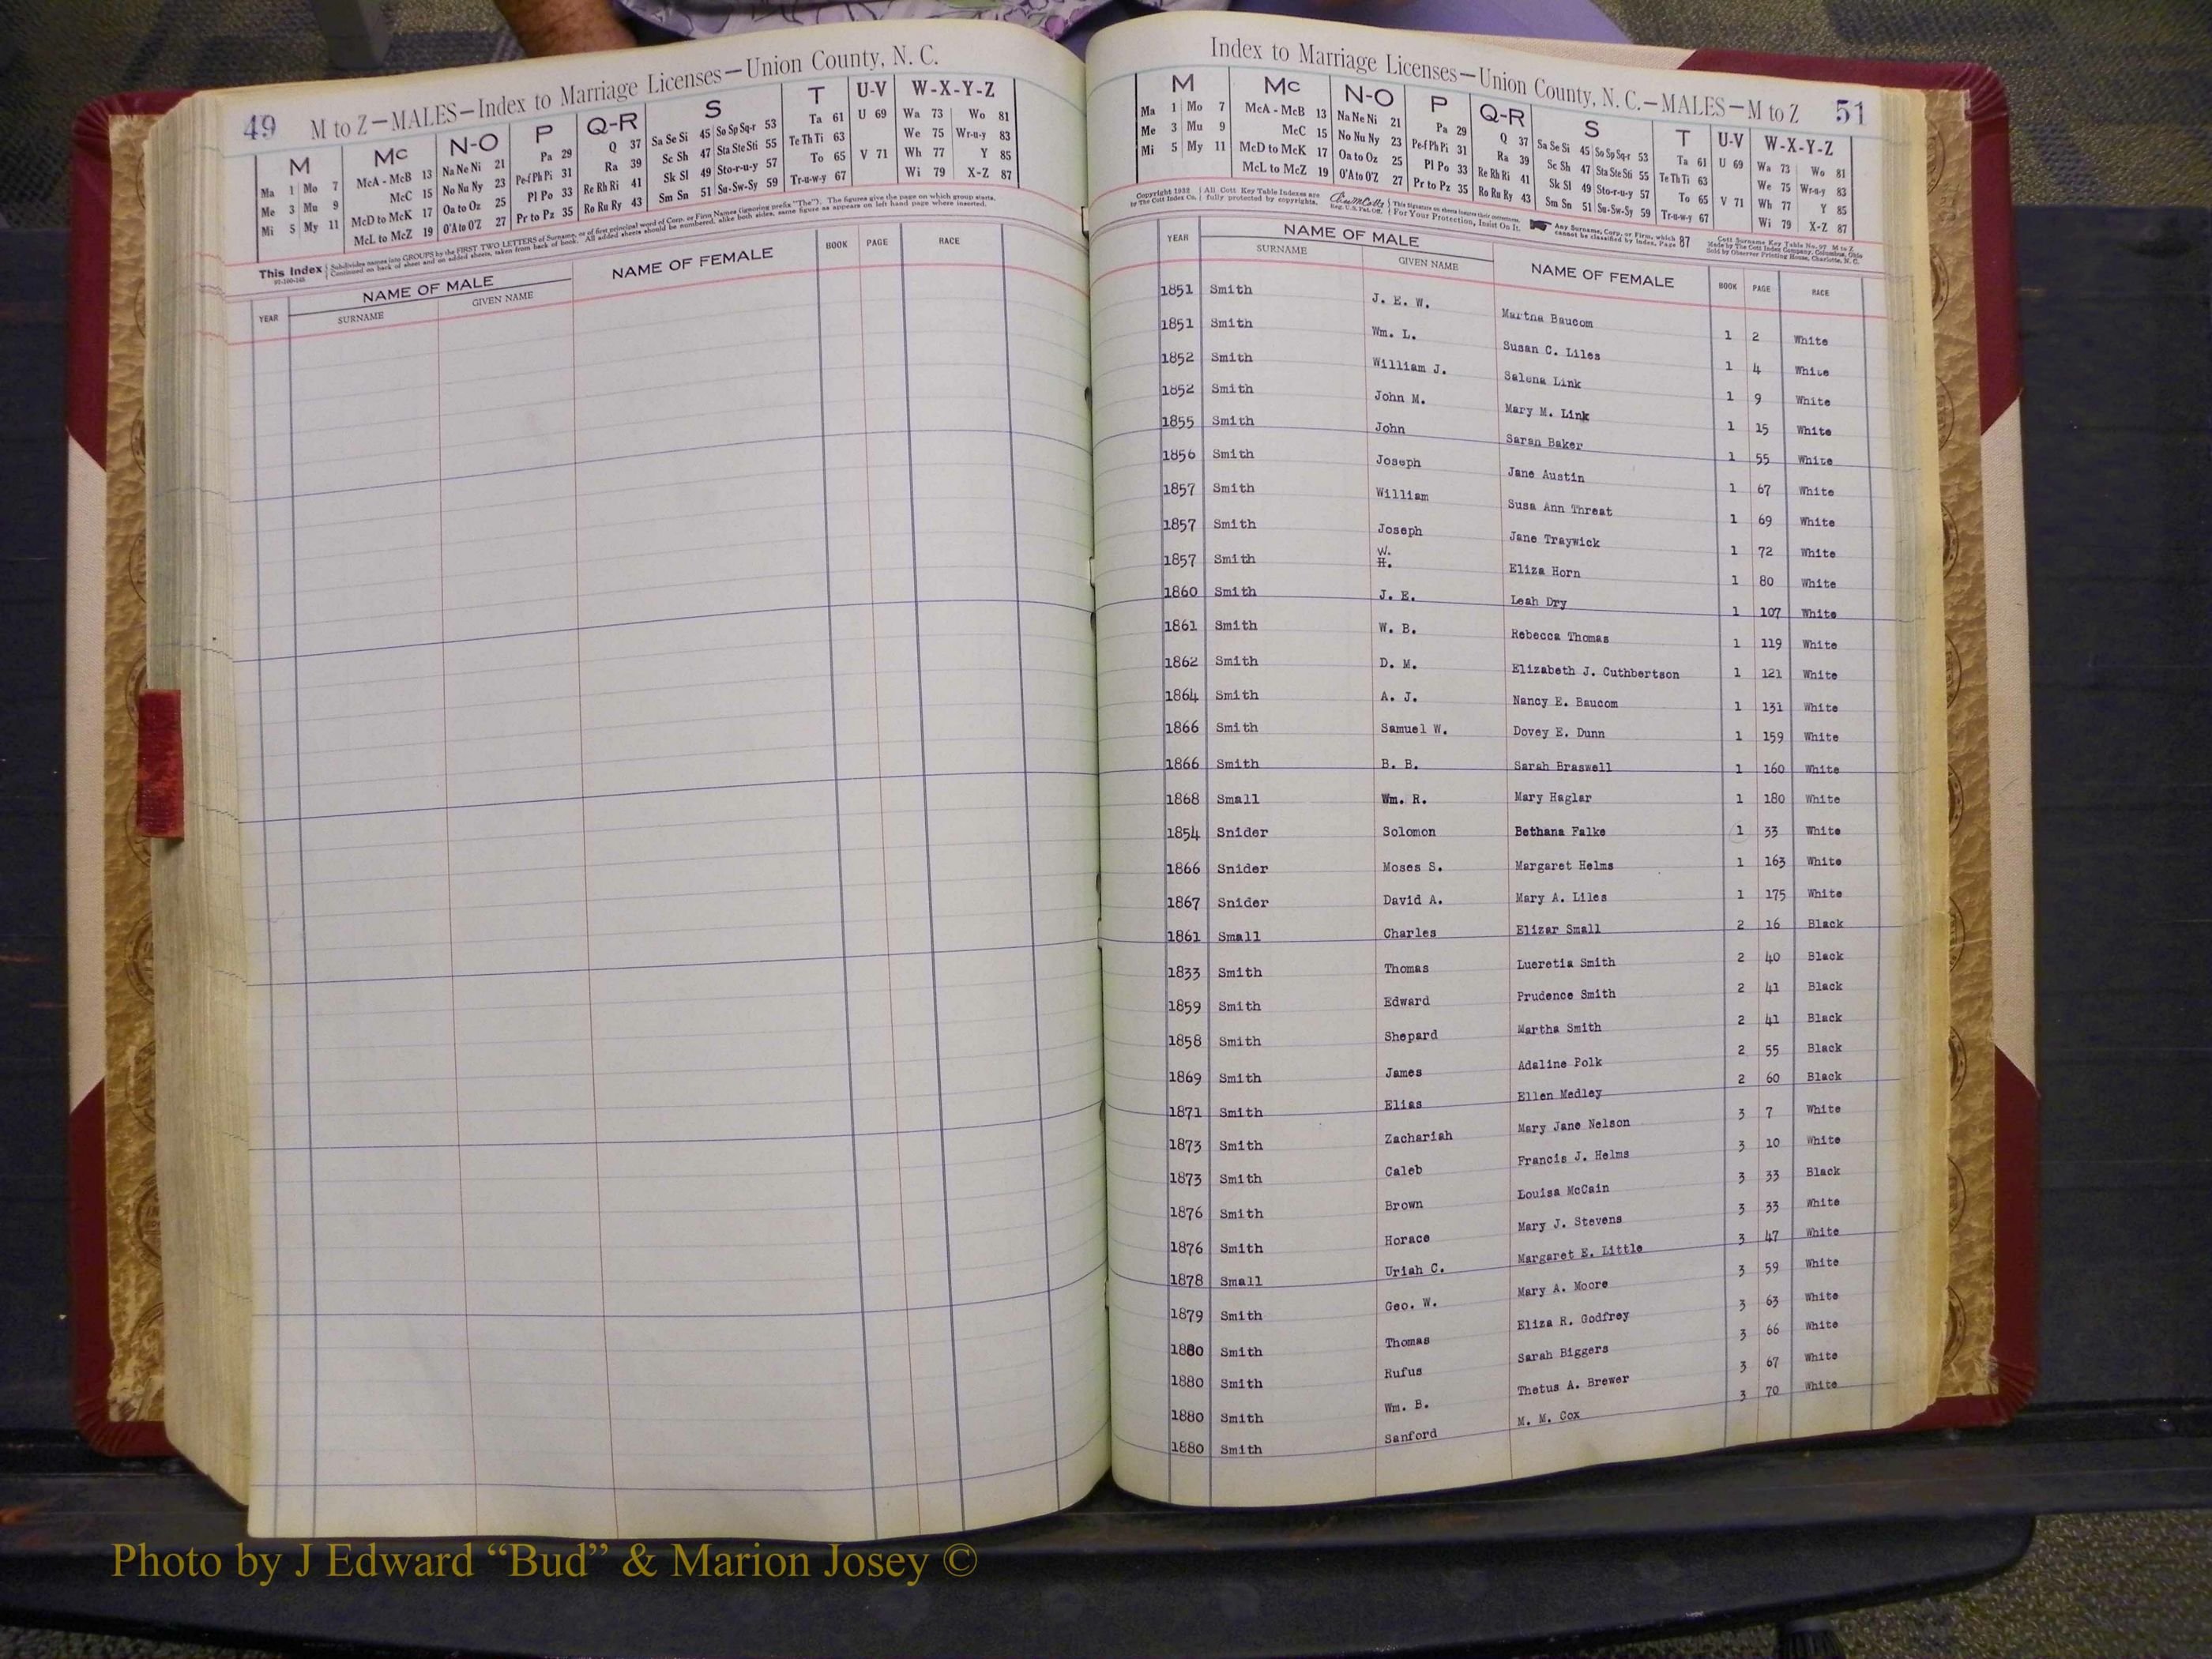 Index to Marriage Licenses—Union County, N. C.
49 M to Z—MALES—Index to Marriage Licenses—Union County, N. C.
M Mc N-O P Q-R S T U-V W-X-Y-Z
Ma 1 Mo 7 McA - McB 13 Na Ne Ni 21 Pa 29 Q 37 Sa Se Si 45 So Sp Sq-r 53 Ta 61 U 69 Wa 73 Wo 81
Me 3 Mu 9 McC 15 No Nu Ny 23 Pe-f Ph Pi 31 Ra 39 Sc Sh 47 Sta Ste Sti 55 Te Th Ti 63 We 75 Wr-u-y 83
Mi 5 My 11 McD to McK 17 Oa to Oz 25 Pl Po 33 Re Rh Ri 41 Sk Sl 49 Sto-r-u-y 57 To 65 V 71 Wh 77 Y 85
McL to McZ 19 O'A to O'Z 27 Pr to Pz 35 Ro Ru Ry 43 Sm Sn 51 Su-Sw-Sy 59 Tr-u-w-y 67 Wi 79 X-Z 87
This Index Subdivides names into GROUPS by the FIRST TWO LETTERS of Surname, or of first principal word of Corp. or Firm Names (ignoring prefix "The"). The figures give the page on which group starts.
Continued on back of sheet and on added sheets, taken from back of book. All added sheets should be numbered, alike both sides, same figure as appears on left hand page where inserted.
YEAR NAME OF MALE NAME OF FEMALE BOOK PAGE RACE
SURNAME GIVEN NAME
Index to Marriage Licenses—Union County, N. C.—MALES—M to Z 51
M Mc N-O P Q-R S T U-V W-X-Y-Z
Ma 1 Mo 7 McA - McB 13 Na Ne Ni 21 Pa 29 Q 37 Sa Se Si 45 So Sp Sq-r 53 Ta 61 U 69 Wa 73 Wo 81
Me 3 Mu 9 McC 15 No Nu Ny 23 Pe-f Ph Pi 31 Ra 39 Sc Sh 47 Sta Ste Sti 55 Te Th Ti 63 We 75 Wr-u-y 83
Mi 5 My 11 McD to McK 17 Oa to Oz 25 Pl Po 33 Re Rh Ri 41 Sk Sl 49 Sto-r-u-y 57 To 65 V 71 Wh 77 Y 85
McL to McZ 19 O'A to O'Z 27 Pr to Pz 35 Ro Ru Ry 43 Sm Sn 51 Su-Sw-Sy 59 Tr-u-w-y 67 Wi 79 X-Z 87
Copyright 1932 by The Cott Index Co. All Cott Key Table Indexes are fully protected by copyrights. Reg. U. S. Pat. Off. For Your Protection, Insist On It. Any Surname, Corp. or Firm, which cannot be classified by Index, Page 87
YEAR NAME OF MALE NAME OF FEMALE BOOK PAGE RACE
SURNAME GIVEN NAME
1851 Smith J. E. W. Martha Baucom 1 2 White
1851 Smith Wm. L. Susan C. Liles 1 4 White
1852 Smith William J. Salena Link 1 9 White
1852 Smith John M. Mary M. Link 1 15 White
1855 Smith John Sarah Baker 1 55 White
1856 Smith Joseph Jane Austin 1 67 White
1857 Smith William Susa Ann Threat 1 69 White
1857 Smith Joseph Jane Traywick 1 72 White
1857 Smith W. H. Eliza Horn 1 80 White
1860 Smith J. E. Leah Dry 1 107 White
1861 Smith W. B. Rebecca Thomas 1 119 White
1862 Smith D. M. Elizabeth J. Cuthbertson 1 121 White
1864 Smith A. J. Nancy E. Baucom 1 131 White
1866 Smith Samuel W. Dovey E. Dunn 1 159 White
1866 Smith B. B. Sarah Braswell 1 160 White
1868 Small Wm. R. Mary Haglar 1 180 White
1854 Snider Solomon Bethana Falke 1 33 White
1866 Snider Moses S. Margaret Helms 1 163 White
1867 Snider David A. Mary A. Liles 1 175 White
1861 Small Charles Elizar Small 2 16 Black
1833 Smith Thomas Lucretia Smith 2 40 Black
1859 Smith Edward Prudence Smith 2 41 Black
1858 Smith Shepard Martha Smith 2 41 Black
1869 Smith James Adaline Polk 2 55 Black
1871 Smith Elias Ellen Medley 2 60 Black
1873 Smith Zachariah Mary Jane Nelson 3 7 White
1873 Smith Caleb Francis J. Helms 3 10 White
1876 Smith Brown Louisa McCain 3 33 Black
1876 Smith Horace Mary J. Stevens 3 33 White
1878 Small Uriah C. Margaret E. Little 3 47 White
1879 Smith Geo. W. Mary A. Moore 3 59 White
1880 Smith Thomas Eliza R. Godfrey 3 63 White
1880 Smith Rufus Sarah Biggers 3 66 White
1880 Smith Wm. B. Thetus A. Brewer 3 67 White
1880 Smith Sanford M. M. Cox 3 70 White
Photo by J Edward “Bud” & Marion Josey ©